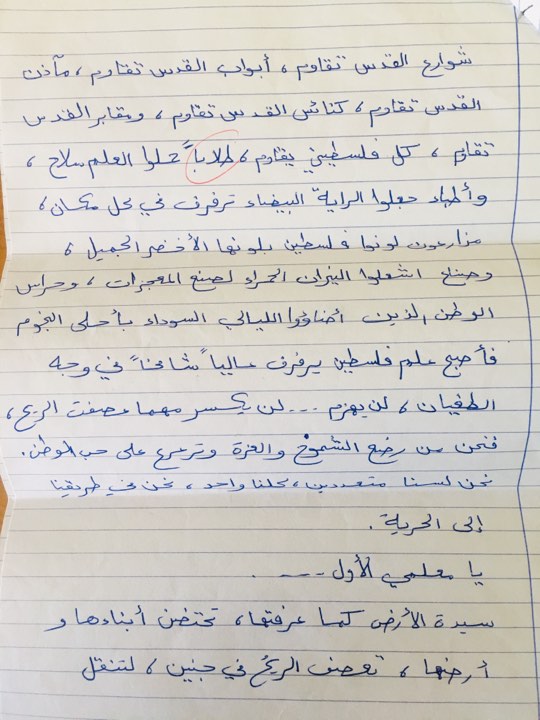 شوارع القدس تقاوم، أبواب القدس تقاوم، مآذن
القدس تقاوم، كنائس القدس تقاوم، ومقابر القدس
تقاوم، كل فلسطيني يقاوم، طلاباً حملوا العلم سلاح،
وأطباء جعلوا الراية البيضاء ترفرف في كل مكان،
مزارعون لونوا فلسطين بلونها الأخضر الجميل،
وصناع اشعلوا النيران الحمراء لصنع المعجزات، وحراس
الوطن الذين أضاؤوا الليالي السوداء بأحلى النجوم
فأصبح علم فلسطين يرفرف عالياً شامخاً في وجه
الطغيان، لن يهزم ... لن يكسر مهما عصفت الريح،
فنحن من رضع الشموخ والعزة وترعرع على حب الوطن.
نحن لسنا متعددين، كلنا واحد، نحن في طريقنا
إلى الحرية.
يا معلمي الأول ....
سيدة الأرض كما عرفتها، تحتضن أبناءها و
أرضها، تعصف الريح في جنين، لتنقل